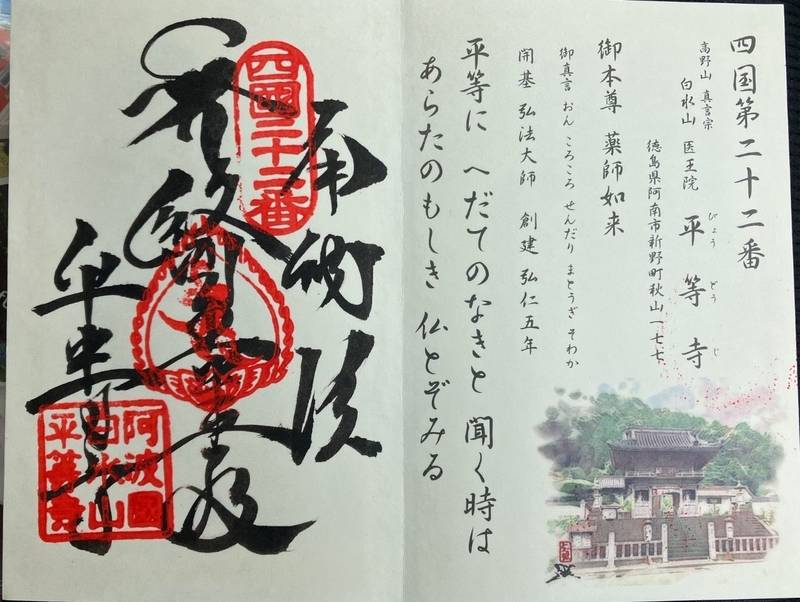 四国第二十二番
高野山 真言宗
白水山 医王院 平等寺
びょう どう じ
徳島県阿南市新野町秋山一七七
御本尊 薬師如来
御真言 おん ころころ せんだり まとうぎ そわか
開基 弘法大師 創建 弘仁五年
平等に へだてのなきと 聞く時は
あらたのもしき 仏とぞみる
奉納経
四國二十二番
平等寺
阿波國
白水山
平等寺